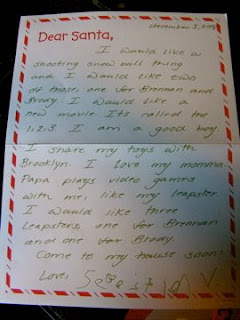 December 3,
Dear Santa,
I would like a
shooting snow ball thing
and I would like two
of those, one for Brennan and
Brody. I would like a
new movie. It's called the
1,2,3. I am a good boy.
I share my toys with
Brooklyn. I love my momma.
Papa plays video games
with me, like my leapster.
I would like three
Leapsters, one for Brennan
and one for Brody.
Come to my house soon.
Love,